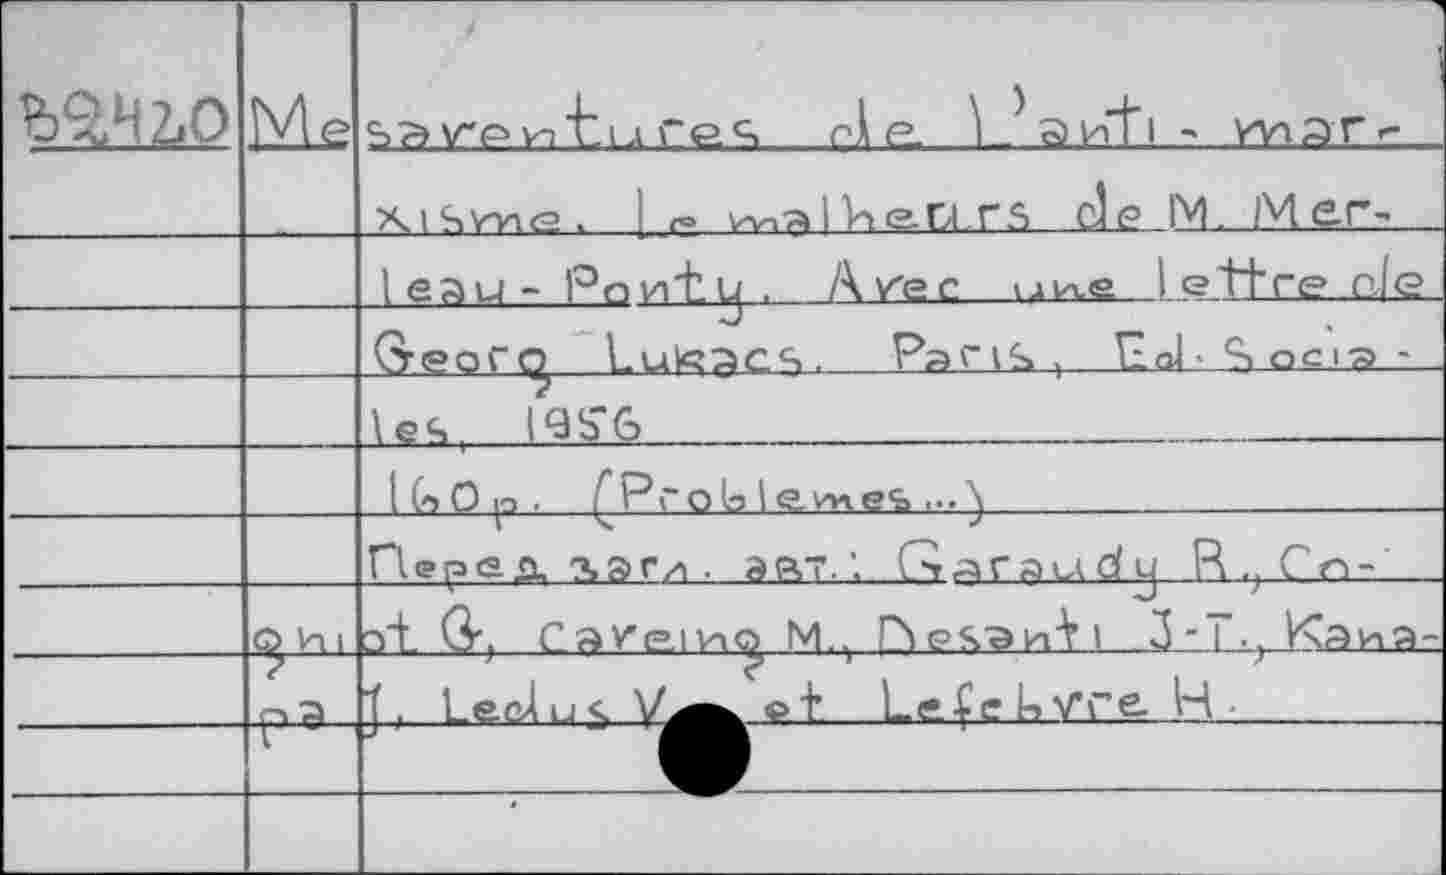 Б9420 Mesaventures de l'anti-mar-
xisme. Le malheurs de M. Mer-
leau-Ponty. Avec une lettre de
Georg Lukacs. Paris, Ed. Socia-
les, 1956
160 p. (Problemes...)
Перед загл. авт.: Garaudy R., Co-
gniot G., Caveing M., Desanti J-T., Kana-
pa J., Ledus V. et Lefebvre H.